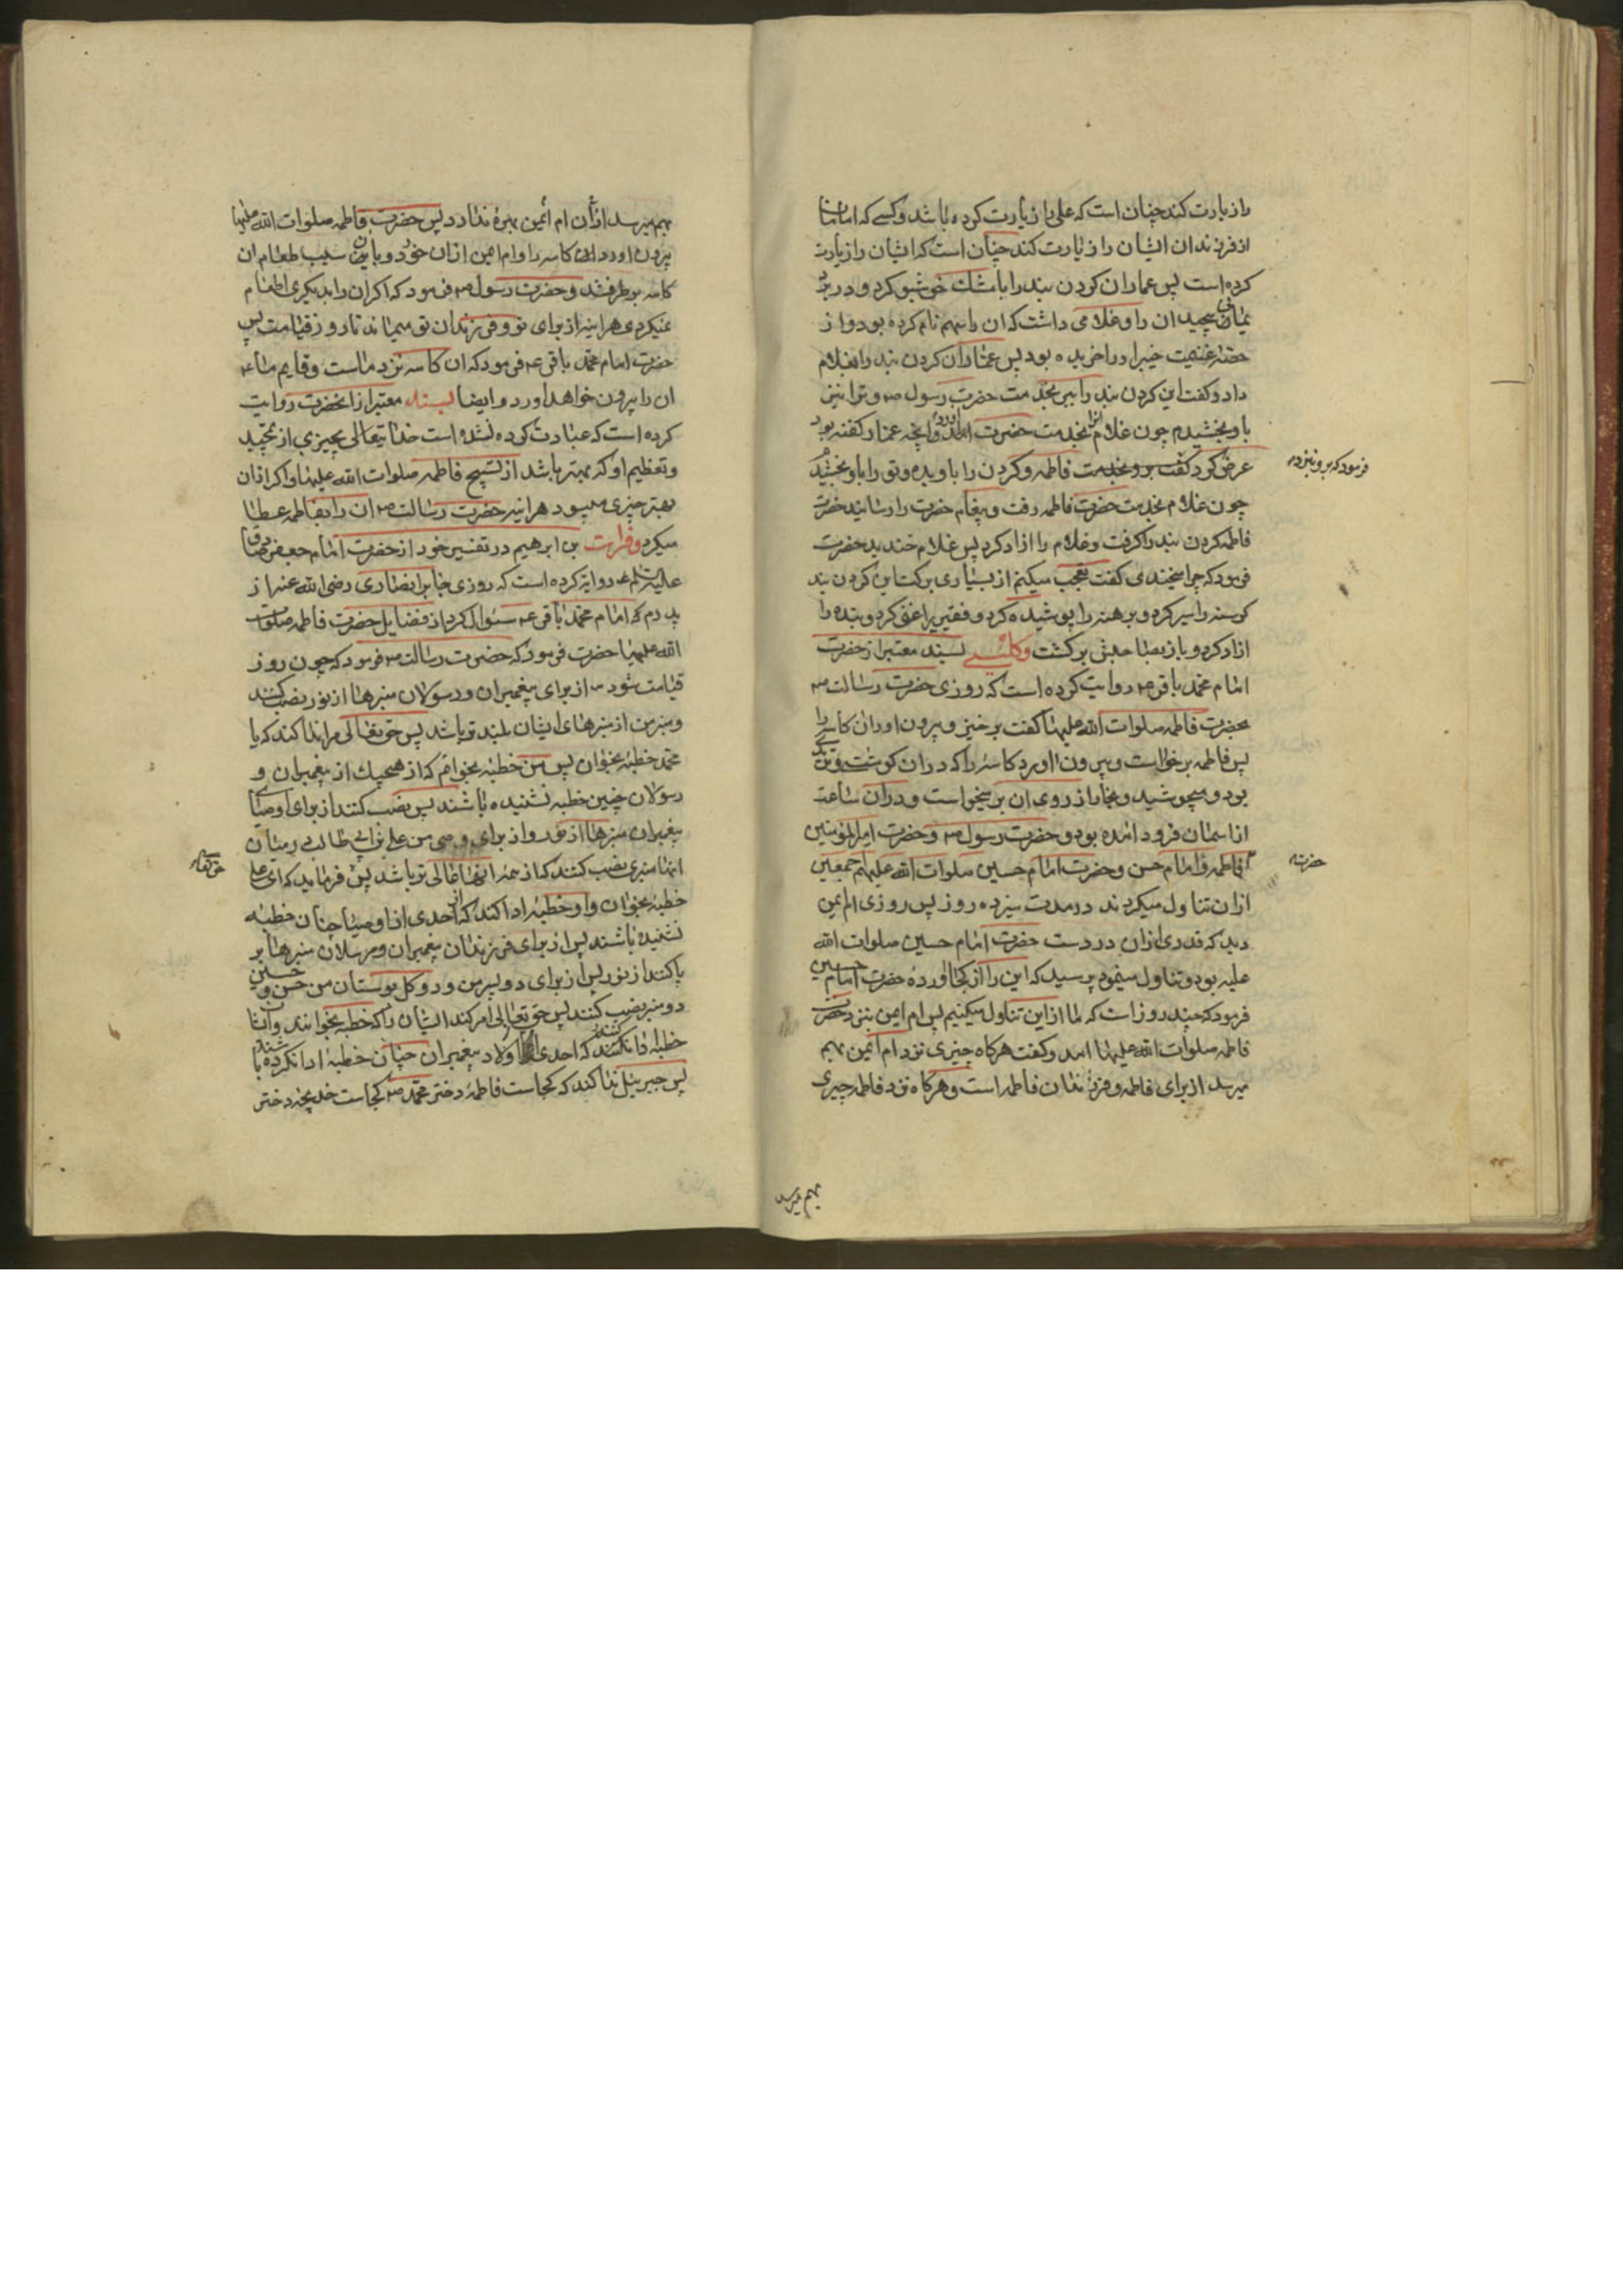 را زیارت کند چنان است که علی را زیارت کرده باشد و کسی که امامان
از فرزندان ایشان را زیارت کند چنان است که ایشان را زیارت
کرده است پس عمار ان کردن بند را با مشک خوشبو کرد و در برد
یمانی پیچید ان را و غلامی داشت که ان را سهم نام کرده بود و از
حصّه غنیمت خیبر او را خریده بود پس عمار ان کردن بند را بغلام
داد و کفت این کردن بند را ببر بخدمت حضرت رسول ص و ترا نیز
باو بخشیدم چون غلام انرا بخدمت حضرت اورد و انچه عمار کفته بود
عرض کرد کفت برو بخدمت فاطمه و کردن را باو بده و تو را باو بخشید
فرمود که برو بنزد
چون غلام بخدمت حضرت فاطمه رفت و پیغام حضرت را رسانید حضرت
فاطمه کردن بند را کرفت و غلام را ازاد کرد پس غلام خندید حضرت
فرمود که چرا میخندی کفت تعجب میکنم از بسیاری برکت این کردن بند
کرسنه را سیر کرد و برهنه را پوشیده کرد و فقیر را غنی کرد و بنده را
ازاد کرد و باز بصاحبش برکشت و کلینی بسند معتبر از حضرت
امام محمد باقر ع روایت کرده است که روزی حضرت رسالت ص
بحضرت فاطمه صلوات الله علیها کفت برخیز و بیرون اور ان کاسه را
پس فاطمه برخواست و بیرون اورد کاسۀ را که در ان کوشت و
بود و میجوشید و بخار از روی ان بر میخواست و در ان ساعت
از اسمان فرود امده بود و حضرت رسول ص و حضرت امیر المؤمنین
و فاطمه و امام حسن و حضرت امام حسین صلوات الله علیهم اجمعین
حضرت
از ان تناول میکردند در مدت سیزده روز پس روزی ام ایمن
دید که قدری از ان در دست حضرت امام حسین صلوات الله
علیه بود و تناول مینمود پرسید که این را از کجا اورده حضرت امام حسین
فرمود که چند روز است که ما از این تناول میکنیم پس ام ایمن بنزد حضرت
فاطمه صلوات الله علیها امد و کفت هرکاه چیزی نزد ام ایمن بهم
میرسد از برای فاطمه و فرزندان فاطمه است و هرکاه نزد فاطمه چیزی
بهم میرسد
بهم میرسد از ان ام ایمن بهرۀ ندارد پس حضرت فاطمه صلوات الله علیها
بیرون اورد ان کاسه را و ام ایمن از ان خورد و باین سبب طعام ان
کاسه برطرف شد و حضرت رسول ص فرمود که اکر ان را بدیکری اطعام
نمیکردی هراینه از برای تو و فرزندان تو میماند تا روز قیامت پس
حضرت امام محمد باقر ع فرمود که ان کاسه نزد ماست و قایم ما ع
ان را بیرون خواهد اورد و ایضا بسند معتبر از انحضرت روایت
کرده است که عبادت کرده نشده است خدایتعالی بچیزی از تمجید
و تعظیم او که بهتر باشد از تسبیح فاطمه صلوات الله علیها و اکر از ان
بهتر چیزی میبود هراینه حضرت رسالت ص ان را بفاطمه عطا
میکرد و فرات بن ابرهیم در تفسیر خود از حضرت امام جعفر صادق
علیه السلم روایة کرده است که روزی جابر انصاری رضی الله عنه از
پدرم که امام محمد باقر ع سئوال کرد از فضایل حضرت فاطمه صلوات
الله علیها حضرت فرمود که حضرت رسالت ص فرمود که چون روز
قیامت شود از برای پیغمبران و رسولان منبرها از نور نصب کنند
و منبر من از منبرهای ایشان بلند تر باشد پس حق تعالی مرا ندا کند که یا
محمد خطبۀ بخوان پس من خطبۀ بخوانم که از هیچیک از پیغمبران و
رسولان چنین خطبه نشنیده باشند پس نصب کنند از برای اوصیای
پیغمبران منبرها از نور و از برای وصی من علی بن ابی طالب در میان
انها منبری نصب کنند که از همۀ انها عالی تر باشد پس فرماید که ای علی
خطبۀ بخوان و او خطبۀ ادا کند که احدی از اوصیا چنان خطبه
نشنیده باشند پس از برای فرزندان پیغمبران و مرسلان منبرها بر
پا کنند از نور پس از برای دو پسر من و دو کل بوستان من حسن و حسین
دو منبر نصب کنند پس حق تعالی امر کند ایشان را که خطبه بخوانند و ایشان
خطبۀ ادا کنند که احدی از اولاد پیغمبران چنان خطبۀ ادا نکرده باشند
پس جبرییل ندا کند که کجاست فاطمۀ دختر محمد ص کجاست خدیجه دختر